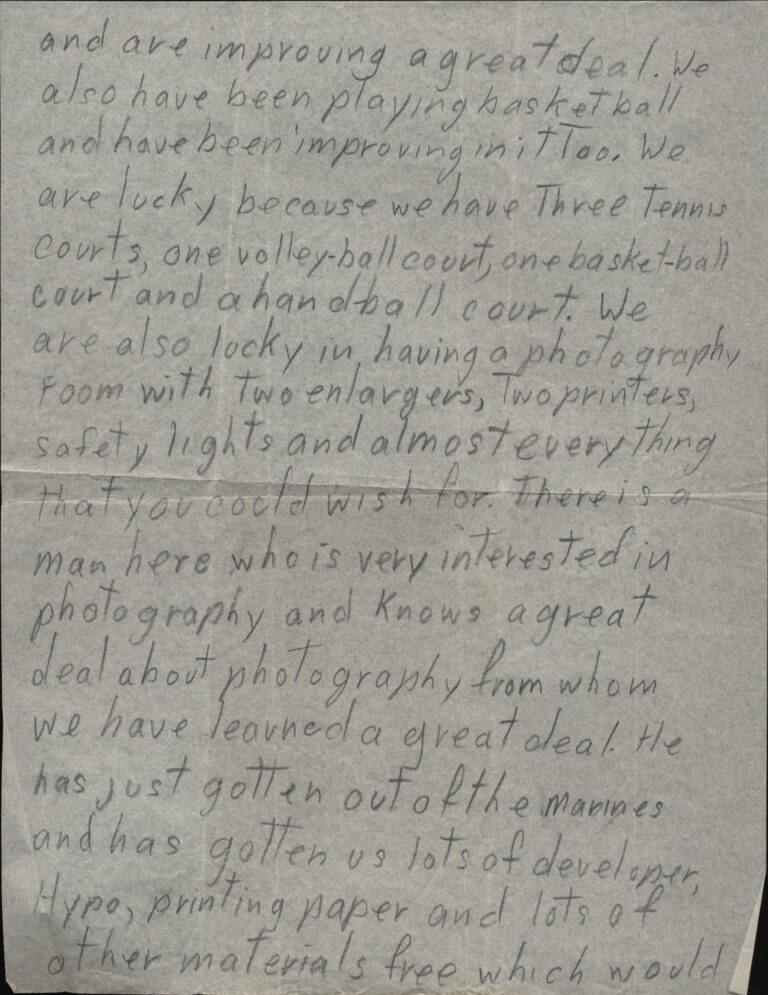 and are improving a great deal. We
also have been playing basketball
and have been improving in it Too. We
are lucky because we have Three Tennis
courts, one volley-ball court, one basket-ball
court and a handball court. We
are also lucky in having a photography
room with Two enlargers, Two printers,
safety lights and almost everything
that you could wish for. There is a
man here who is very interested in
photography and Knows a great
deal about photography from whom
we have learned a great deal. He
has just gotten out of the Marines
and has gotten us lots of developer,
Hypo, printing paper and lots of
other materials free which would